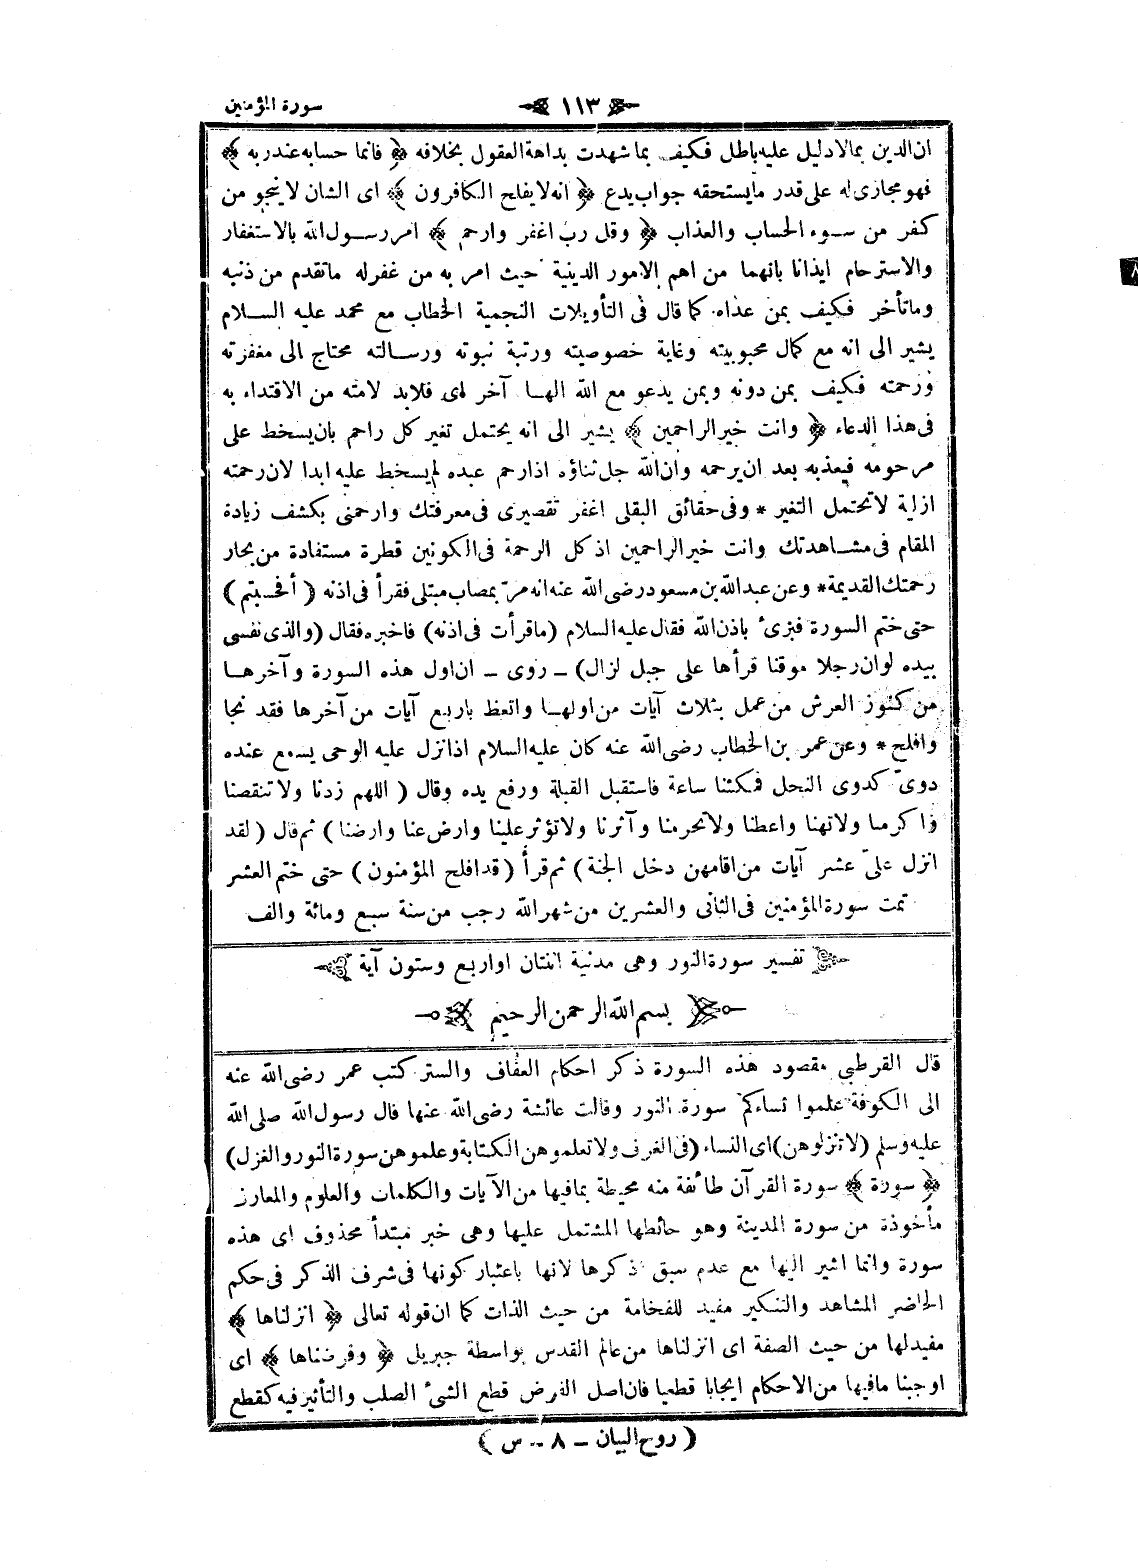 سورة المؤمنين
١١٣
ان الدين بما لا دليل عليه باطل فكيف بما شهدت بداهة العقول بخلافه ﴿ فانما حسابه عند ربه ﴾
فهو مجازى له على قدر ما يستحقه جواب يدع ﴿ انه لا يفلح الكافرون ﴾ اى الشان لا ينجو من
كفر من سوء الحساب والعذاب ﴿ وقل رب اغفر وارحم ﴾ امر رسول الله بالاستغفار
والاسترحام ايذانا بانهما من اهم الامور الدينية حيث امر به من غفر له ما تقدم من ذنبه
وما تأخر فكيف بمن عداه كما قال فى التأويلات النجمية الخطاب مع محمد عليه السلام
يشير الى انه مع كمال محبوبيته وغاية خصوصيته ورتبة نبوته ورسالته محتاج الى مغفرته
ورحمته فكيف بمن دونه وبمن يدعو مع الله الها آخر اى فلابد لامته من الاقتداء به
فى هذا الدعاء ﴿ وانت خير الراحمين ﴾ يشير الى انه يحتمل تغير كل راحم بان يسخط على
مرحومه فيعذبه بعد ان يرحمه وان الله جل ثناؤه اذا رحم عبده لم يسخط عليه ابدا لان رحمته
ازلية لا تحتمل التغير * وفى حقائق البقلى اغفر تقصيرى فى معرفتك وارحمنى بكشف زيادة
المقام فى مشاهدتك وانت خير الراحمين اذ كل الرحمة فى الكونين قطرة مستفادة من بحار
رحمتك القديمة * وعن عبد الله بن مسعود رضى الله عنه انه مرّ بمصاب مبتلى فقرأ فى اذنه ( أفحسبتم )
حتى ختم السورة فبرئ باذن الله فقال عليه السلام (ما قرأت فى اذنه) فاخبره فقال (والذى نفسى
بيده لو ان رجلا موقنا قرأها على جبل لزال) ـ روى ـ ان اول هذه السورة وآخرها
من كنوز العرش من عمل بثلاث آيات من اولها واتعظ باربع آيات من آخرها فقد نجا
وافلح * وعن عمر بن الخطاب رضى الله عنه كان عليه السلام اذا نزل عليه الوحى يسمع عنده
دوىّ كدوى النحل فمكثنا ساعة فاستقبل القبلة ورفع يده وقال ( اللهم زدنا ولا تنقصنا
واكرمنا ولا تهنا واعطنا ولا تحرمنا وآثرنا ولا تؤثر علينا وارض عنا وارضنا ) ثم قال ( لقد
انزل علىّ عشر آيات من اقامهن دخل الجنة ) ثم قرأ ( قد افلح المؤمنون ) حتى ختم العشر
تمت سورة المؤمنين فى الثانى والعشرين من شهر الله رجب من سنة سبع ومائة والف
تفسير سورة النور وهى مدنية اثنتان او اربع وستون آية
بسم الله الرحمن الرحيم
قال القرطبى مقصود هذه السورة ذكر احكام العفاف والستر كتب عمر رضى الله عنه
الى الكوفة علموا نساءكم سورة النور وقالت عائشة رضى الله عنها قال رسول الله صلى الله
عليه وسلم (لا تنزلوهن) اى النساء (فى الغرف ولا تعلموهن الكتابة وعلموهن سورة النور والغزل)
﴿ سورة ﴾ سورة القرآن طائفة منه محيطة بما فيها من الآيات والكلمات والعلوم والمعارف
مأخوذة من سورة المدينة وهو حائطها المشتمل عليها وهى خبر مبتدأ محذوف اى هذه
سورة وانما اشير اليها مع عدم سبق ذكرها لانها باعتبار كونها فى شرف الذكر فى حكم
الحاضر المشاهد والتنكير مفيد للفخامة من حيث الذات كما ان قوله تعالى ﴿ انزلناها ﴾
مفيد لها من حيث الصفة اى انزلناها من عالم القدس بواسطة جبريل ﴿ وفرضناها ﴾ اى
اوجبنا ما فيها من الاحكام ايجابا قطعيا فان اصل الفرض قطع الشئ الصلب والتأثير فيه كقطع
( روح البيان ـ ٨ ـ س )